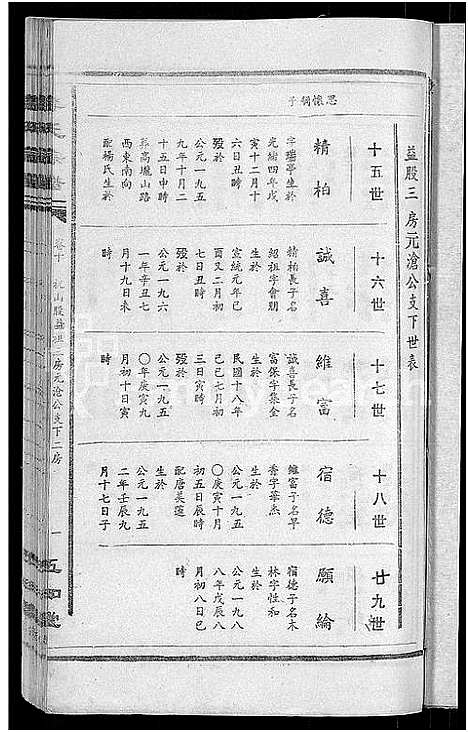 益股三房元滄公支下世表
思懷桐子
十五世
精柏
字瑤亭生於
光緒四年戊
寅十二月十
六日丑時
歿於
公元一九五
九年十月二
十五日申時
葬高壠山路
西東南向
配楊氏生於
十六世
誠喜
精柏長子名
紹祖字會朗
生於
宣統元年己
酉又二月初
七日丑時
歿於
公元一九六
一年辛丑七
月十九日未
時
十七世
維富
誠喜長子名
富保字集金
生於
民國十八年
己巳七月初
三日寅時
歿於
公元一九五
〇年庚寅九
月初十日寅
時
十八世
宿德
維富子名早
秀字華杰
生於
公元一九五
〇庚寅十月
初五日辰時
配唐美蓮
生於
公元一九五
二年壬辰九
月十七日子
廿九世
願綸
宿德子名未
林字性和
生於
公元一九八
八年戊辰八
月初八日巳
時
房元滄公支下二房
一